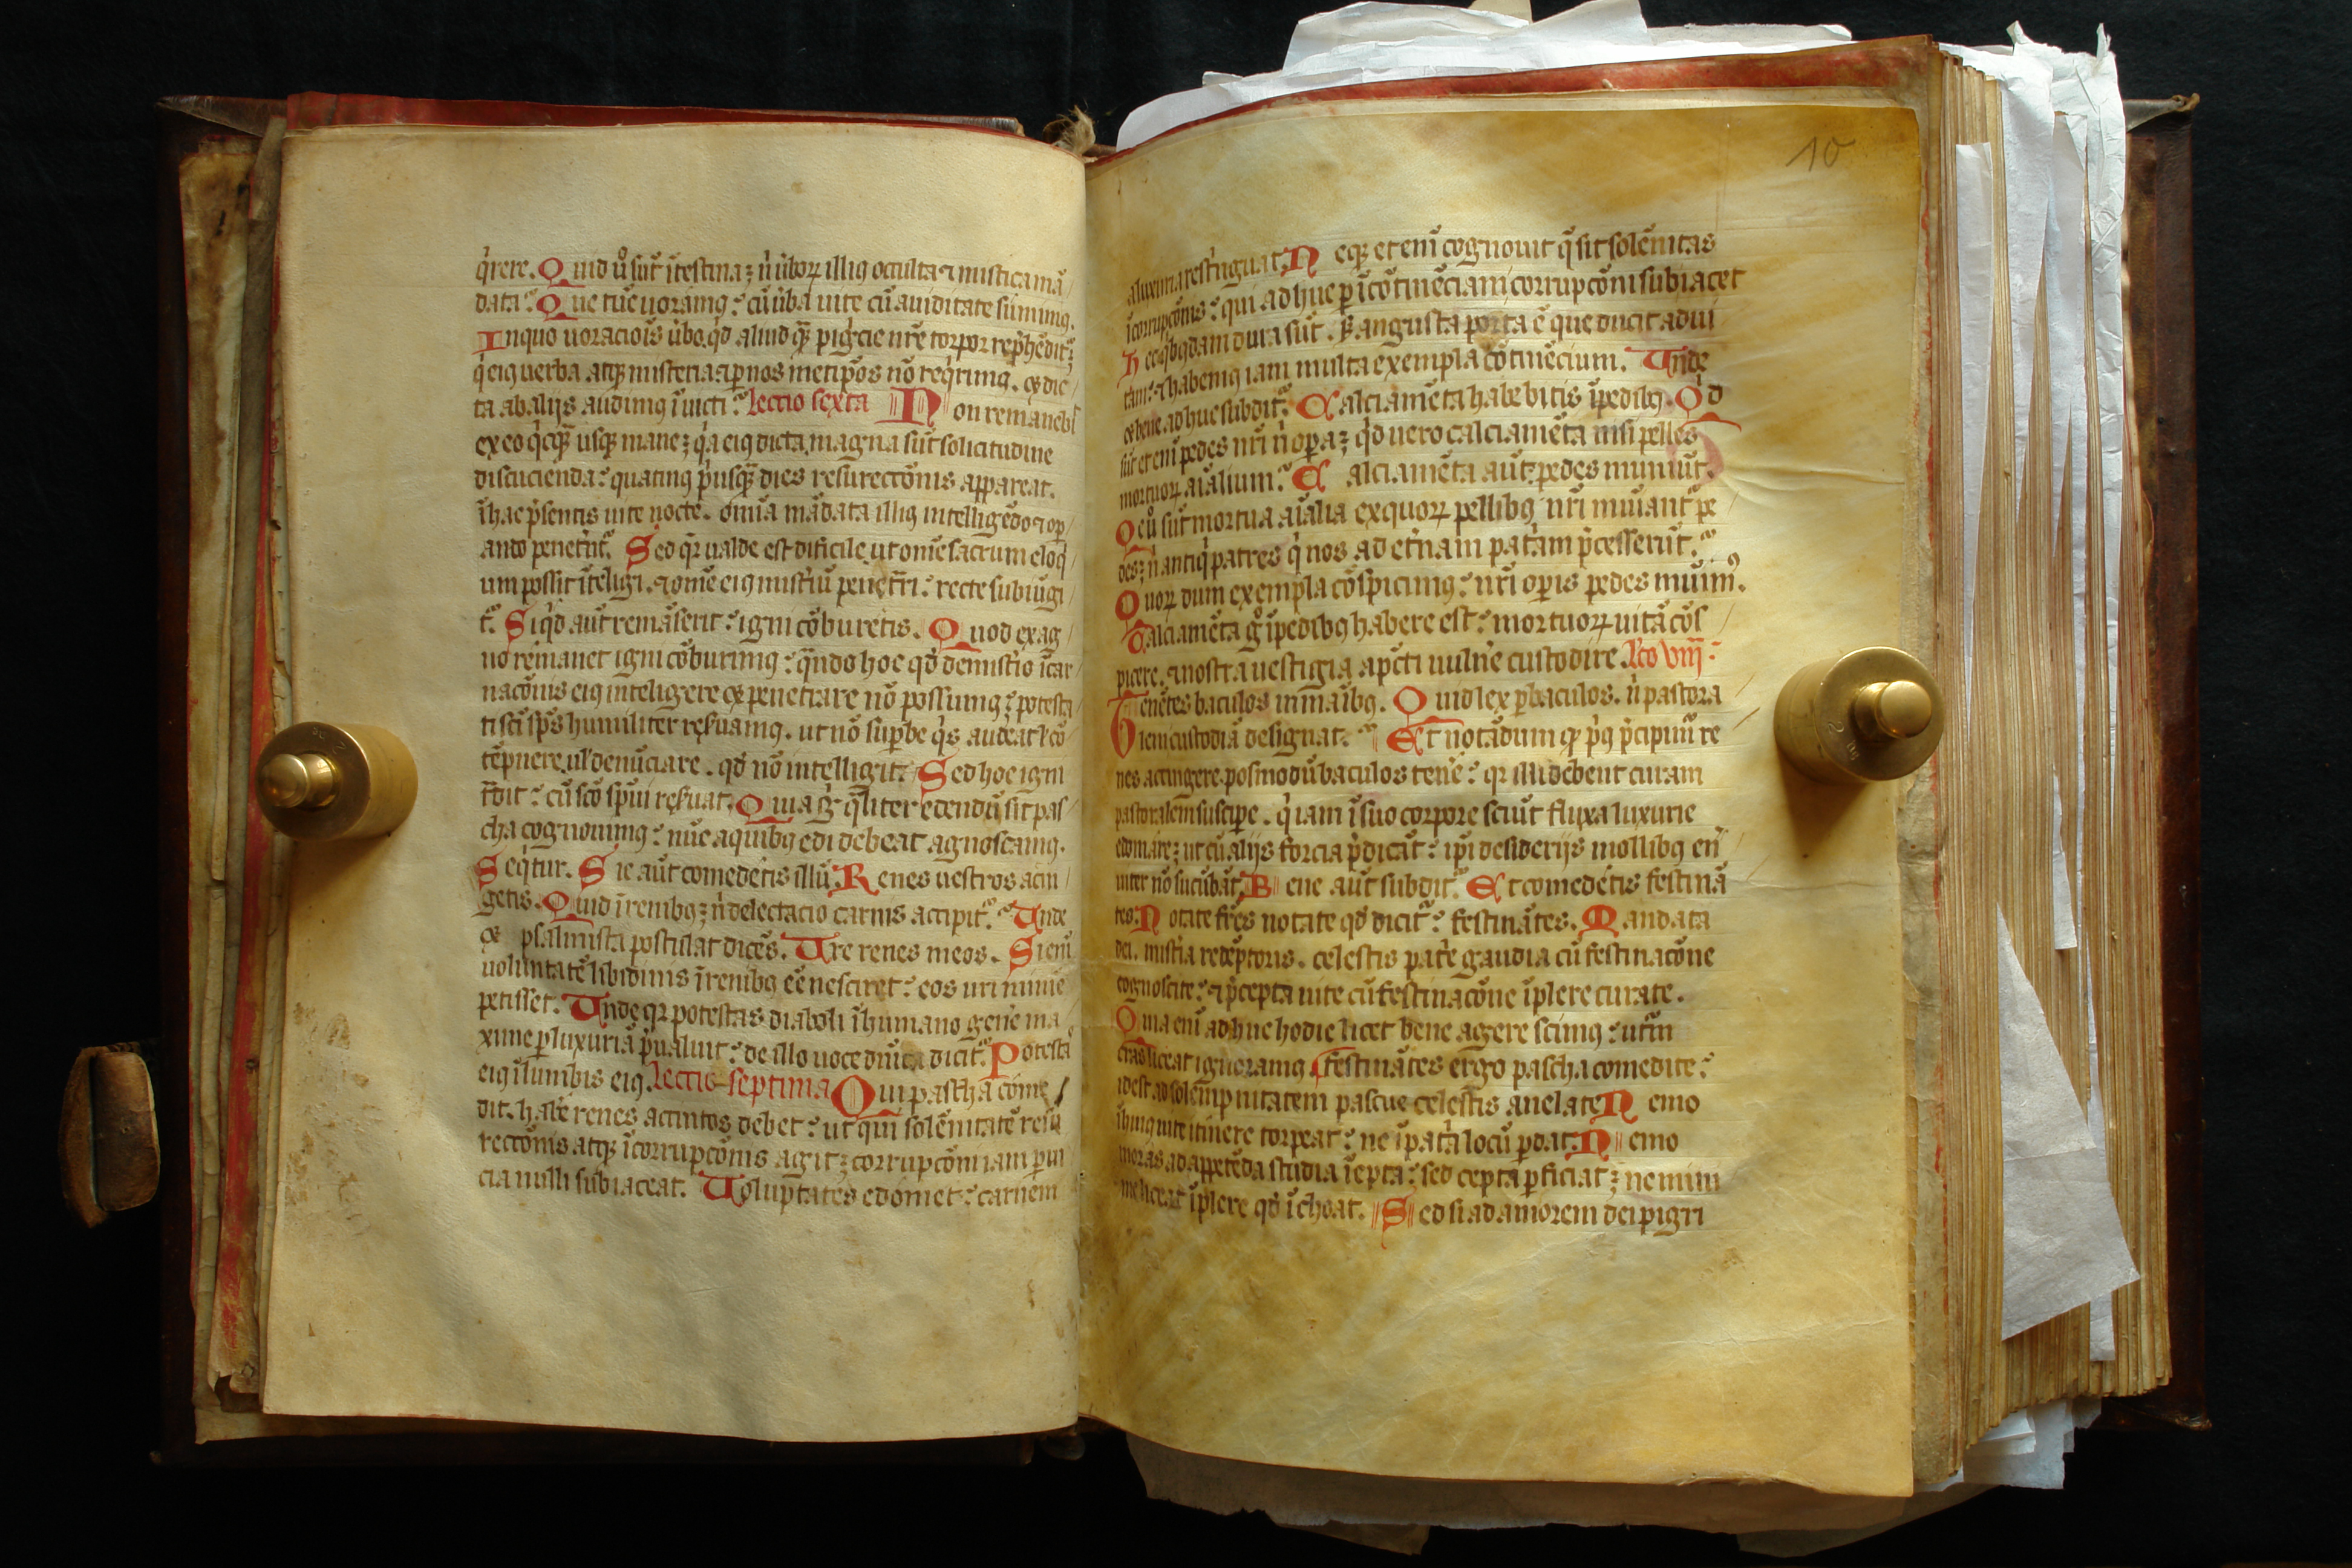 q̇rere. Quid ů sūt ītestina ꝫ n̄ ůboꝝ illiꝰ occulta ⁊ mistica mā
data? Que tūc uoramꝰ? cū ůba uite cū auiditate sumimꝰ.
In quo uoraciōis ůbo. qd̓ aliud qͣꝫ pigͥcie nr̄e torpor rep̓hēdit᷑ꝫ
q̇ eiꝰ uerba atqꝫ misteria ⁊ ꝑ nos metip̄os nō req̇rimꝰ. ⁊ dic
ta ab alijs audimꝰ īuicti? lectio sexta Non remanebit
ex eo q̇cqͣꝫ usqꝫ mane ꝫ q̇a eiꝰ dicta magna sūt solicitudine
discucienda? quatinꝰ p̓usqͣꝫ dies resurectōnis appareat.
ī hac p̄sentis uite nocte. om̄ia mādata illiꝰ intelligēdo ⁊ op
ando penet̓nt᷑. Sed qꝛ ualde est dificile ut om̄e sacrum eloq̇
um possit ītelligi. ⁊ om̄e eiꝰ mist̓iū penet̓ri? recte subiūgi
t᷑. Siqd̓ aūt remāserit? igni cōburetis. Quod ex ag
no remanet igni cōburimꝰ? qͣndo hoc qd̓ de mist̓io īcar
nacōnis eiꝰ inteligere ⁊ penetrare nō possumꝰ? potesta
ti sc̄i sp̄s humiliter reẜuamꝰ. ut nō suꝑbe q̇s audeat ł cō
tēpnere ul̓ denūciare. qd̓ nō intelligit. Sed hoc igni
t̓dit? cū sc̄o sp̄ui reẜuat. Quia gͦ qͣliter edendū sit pas
cha cognouimꝰ? nūc a quibꝰ edi debeat agnoscamꝰ.
Seq̇tur. Sic aūt comedetis illū. Renes uestros acci
getis. Quid ī renibꝰ ꝫ n̄ delectacio carnis accipit᷑? Unde
⁊ psalmista postulat dicēs. Ure renes meos. Si eni
uoluntatē libidinis ī renibꝰ eē nesciret? eos uri minie
petisset. Unde qꝛ potestas diaboli ī humano gen̄e ma
xime ꝑ luxuriā p̄ualuit? de illo uoce diuīa dicit᷑. Potestas
eiꝰ ī lumbis eiꝰ. lectio septima Qui pascha come
dit. hab̄e renes accintos debet? ut qui solēnitatē resu
rectōnis atqꝫ īcorrupcōnis agit ꝫ corrupcōni iam ꝑ ui
cia nulli subiaceat. Uoluptates edomet? carnem
10
a luxuria rest̓nguat. Neqꝫ eteni cognouit q̄ sit solēnitas
īcorrupcōnis? qui adhuc ꝑ īcōtinēciam corrupcōni subiacet
Hec qͥbꝰdam dura sūt. ẜ angusta porta ē que ducit ad ui
tam? ⁊ habemꝰ iam multa exempla cōtinēcium. Unde
⁊ bene adhuc subdit᷑. Calciamēta habebitis ī pedibꝰ. Qd̓
sūt eteni pedes nr̄i n̄ oꝑa ꝫ qd̓ uero calciamēta nisi pelles
mortuoꝝ aīalium? Calciamēta aūt pedes muniūt.
Que ů sūt mortua aīalia ex quoꝝ pellibꝰ nr̄i muniant᷑ pe
des ꝫ n̄ antiq̇ patres q̇ nos ad et̓nam pat̓am p̄cesserūt?
Quoꝝ dum exempla cōspicimꝰ? nr̄i oꝑis pedes munimꝰ.
Calciamēta gͦ ī pedibꝰ habere est? mortuoꝝ uitā cōs
picere. ⁊ nostra uestigia a pcc̄ti uuln̄e custodire. lc̄o viij
Tenētes baculos in manibꝰ. Quid lex ꝑ baculos. n̄ pastora
lem custodiā designat? Et notādum ꝙ p̓ꝰ p̄cipim᷑ re
nes accingere. posmodū baculos ten̄e? qꝛ illi debent curam
pastoralem suscipe. q̇ iam ī suo corpore sciūt fluxa luxurie
edomare ꝫ ut cū alijs forcia p̄dicāt? ip̄i desiderijs mollibꝰ en̄
uiter nō sucūbāt. Bene aūt subdit᷑. Et comedetis festinā
tes. Notate fr̄es notate qd̓ dicit᷑? festinātes. Mandata
dei. mist̓ia redēptoris. celestis pat̓e gaudia cū festinacōne
cognoscite? ⁊ p̄cepta uite cū festinacōne īplere curate.
Quia eni adhuc hodie licet bene agere scimꝰ? utꝛ̄
cras liceat ignoramꝰ. festinātes ergo pascha comedite?
id est ad solempnitatem pascue celestis anelate. Nemo
ī huiꝰ uite itinere torpeat? ne ī pat̓a locū ꝑdat. Nemo
moras ad appetēda studia īepta? sed cepta ꝑficiat ꝫ ne mini
me liceat īplere qd̓ īchoat. Sed si ad amorem dei pigri